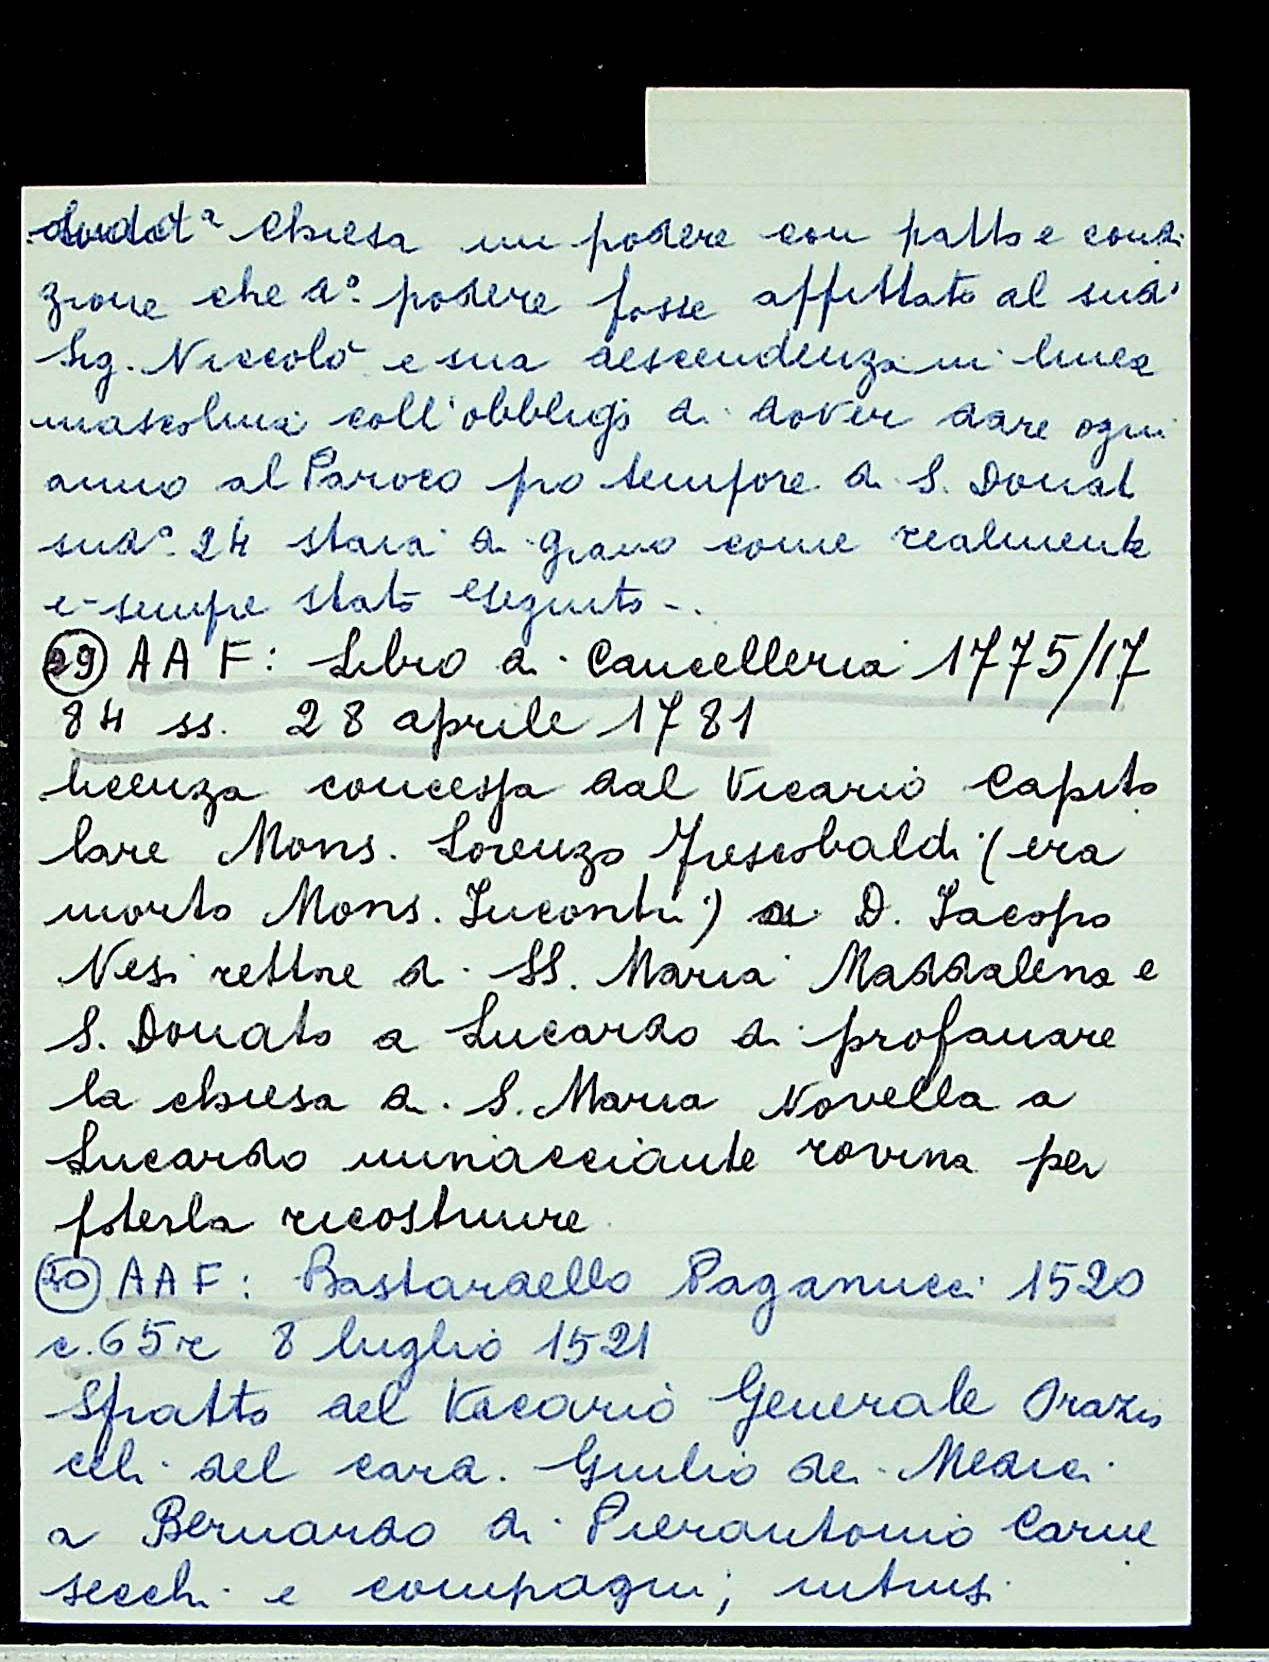 sudd.ª chiesa un podere con patto e condi
zione che d.º podere fosse affittato al sud.
Sig. Niccolò e sua descendenza in linea
mascolina coll'obbligo di dover dare ogni
anno al Paroco pro tempore di S. Donat
sud.º 24 staia di grano come realmente
e sempre stato eseguito -.
29 AAF: Libro di Cancelleria 1775/17
84 ss. 28 aprile 1781
licenza concessa dal Vicario Capito
lare Mons. Lorenzo Frescobaldi (era
morto Mons. Incontri) a D. Jacopo
Nesi rettore di SS. Maria Maddalena e
S. Donato a Lucardo di profanare
la chiesa di S. Maria Novella a
Lucardo minacciante rovina per
poterla ricostruire
AAF: Bastardello Paganucci 1520
c. 65r 8 luglio 1521
Sfratto del Vicario Generale Orazio
del card. Giulio de Medici
a Bernardo di Pierantonio Carne
secchi e compagni; intrusi